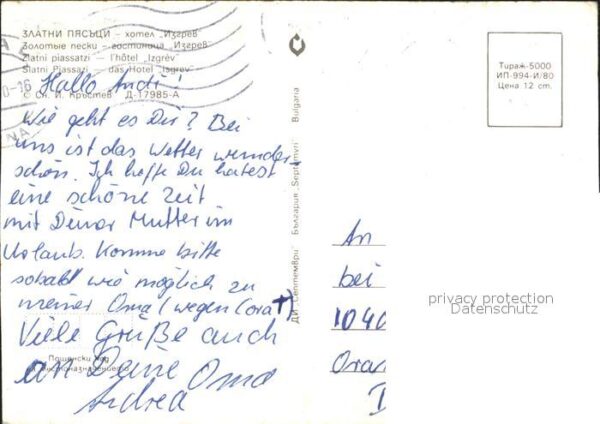 ЗЛАТНИ ПЯСЪЦИ – хотел „Изгрев"
Золотые пески – гостиница „Изгрев"
Zlatni piassatzi – l'hôtel „Izgrév"
Slatni Piassazi – das Hotel „Isgrev"
© Сн. И. Кръстев Д-17985-А
Hallo Andi!
Wie geht es Dir? Bei
uns ist das Wetter wunder-
schön. Ich hoffe Du hattest
eine schöne Zeit
mit Deiner Mutter im
Urlaub. Komme bitte
sobald wie möglich zu
meiner Oma (wegen Cora †)
Viele Grüße auch
an Deine Oma
Andrea
Пощенски код
на местоназначението
ДИ „Септември" България „Septemvri" Bulgaria
Тираж-5000
ИП-994-И/80
Цена 12 ст.
An
bei
104
Oran
privacy protection
Datenschutz